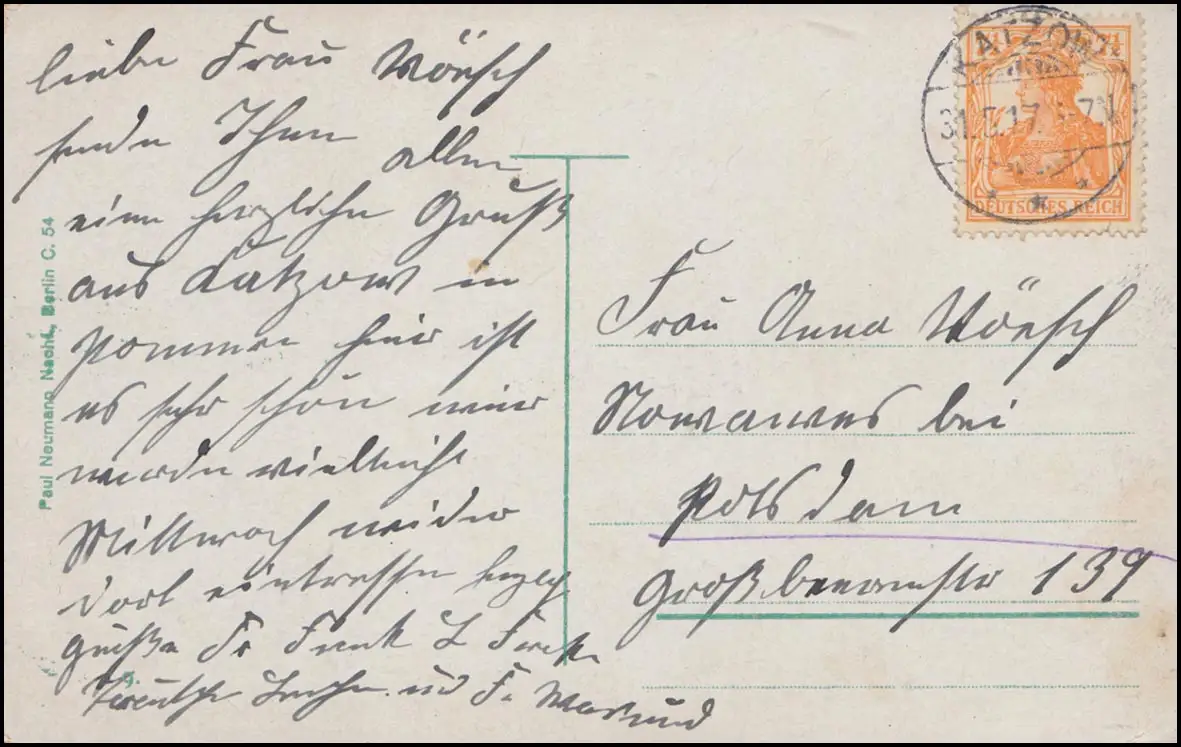 liebe Frau Wörsch
sende Ihnen allen
einen herzlichen Gruß
aus Katzow in
Pommern hier ist
es sehr schön wir
werden vielleicht
Mittwoch wider
dort eintreffen
Grüße Fr Funk
und Fr
Paul Neumann Nachf., Berlin C. 54
KATZOW
31.5.17. 7
DEUTSCHES REICH
Frau Anna Wörsch
Nowawes bei
Potsdam
Großbeerenstr 139